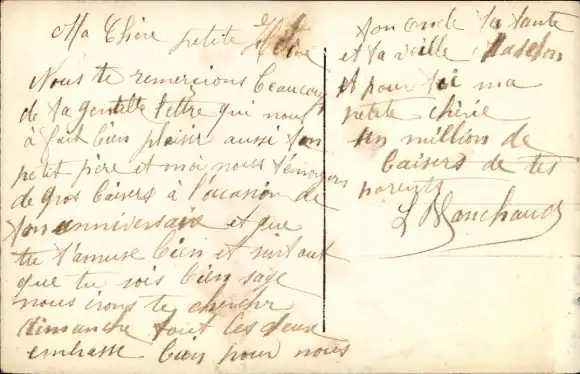 Ma Chère petite Hélène
Nous te remercions beaucoup
de ta gentille lettre qui nous
à fait bien plaisir aussi ton
petit père et moi nous t'envoyons
de gros baisers à l'ocasion de
ton anniversaire et que
tu t'amuse bien et surtout
que tu sois bien sage
nous irons te chercher
dimanche tout les deux
embrasse bien pour nous
ton oncle ta tante
et ta vielle
et pour toi ma
petite chérie
un million de
baisers de tes
parents
L Blanchaud